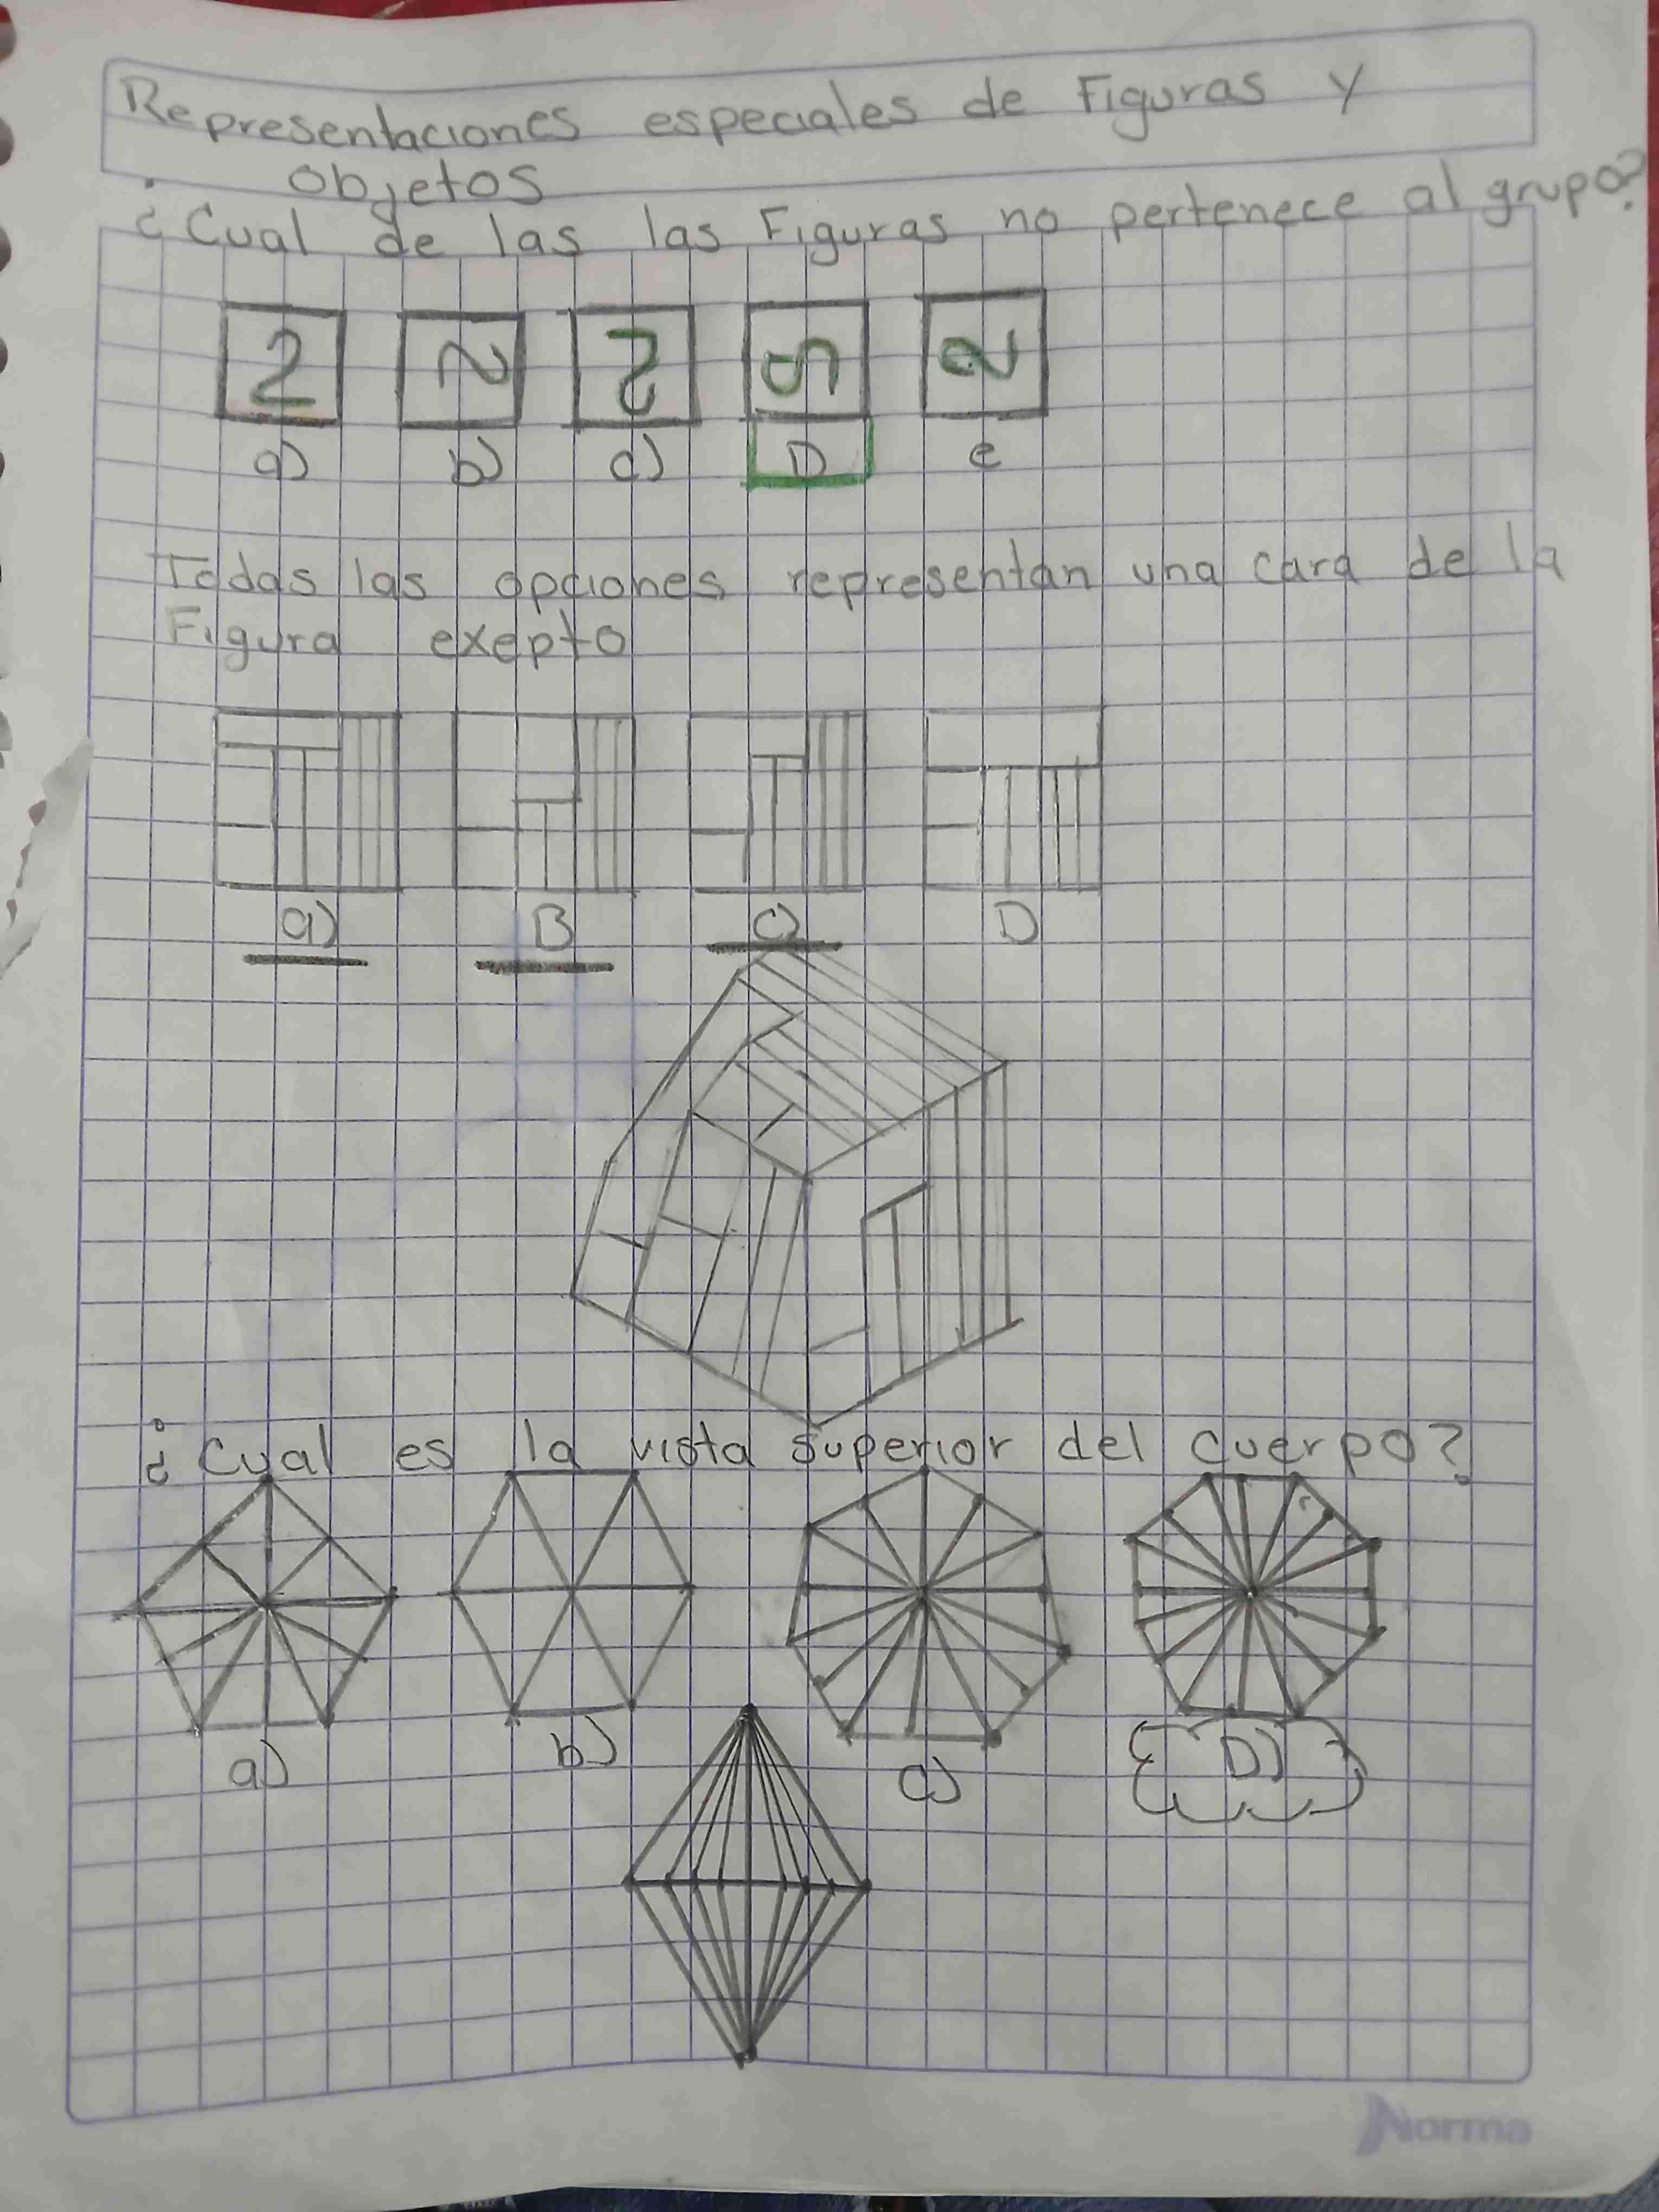 Representaciones especiales de Figuras y
objetos
¿Cual de las las Figuras no pertenece al grupo?
2 2 2 2 2
a) b) c) D e
Todas las opciones representan una cara de la
Figura exepto
a) B c) D
¿Cual es la vista superior del cuerpo?
a) b) c) D)
Norma